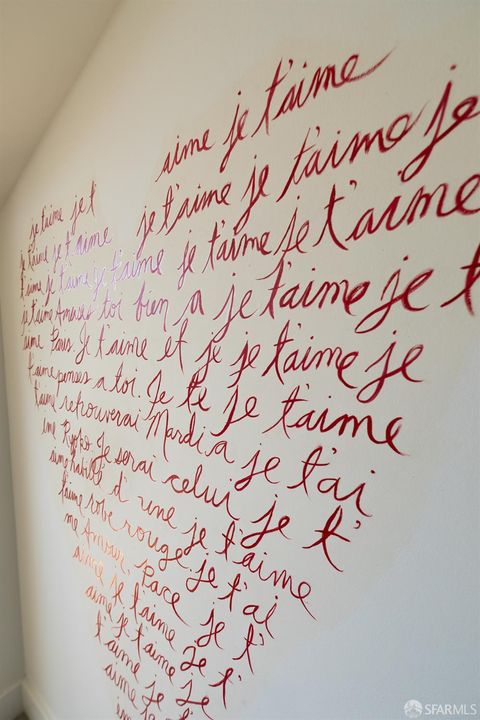 aime je t'aime
je t'aime je t je t'aime je t'aime je
Je t'aime je t'aime je t'aime je t'aime
t'aime je t'aime je t'aime je t'aime je t'aime
je t'aime Amuses toi bien a je t'aime je t
aime Paris Je t'aime et je je t'aime je
t'aime penses a toi. Je te je t'aime
t'aime retrouverai Mardi a je t'ai
ime Ryoko. Je serai celui je t'
aime habillé d'une je t'aime
t'aime robe rouge je t'ai
me Amour, Race je t'
aime je t'aime Je
aime je t'aime je
t'aime je je
aime je
SFARMLS